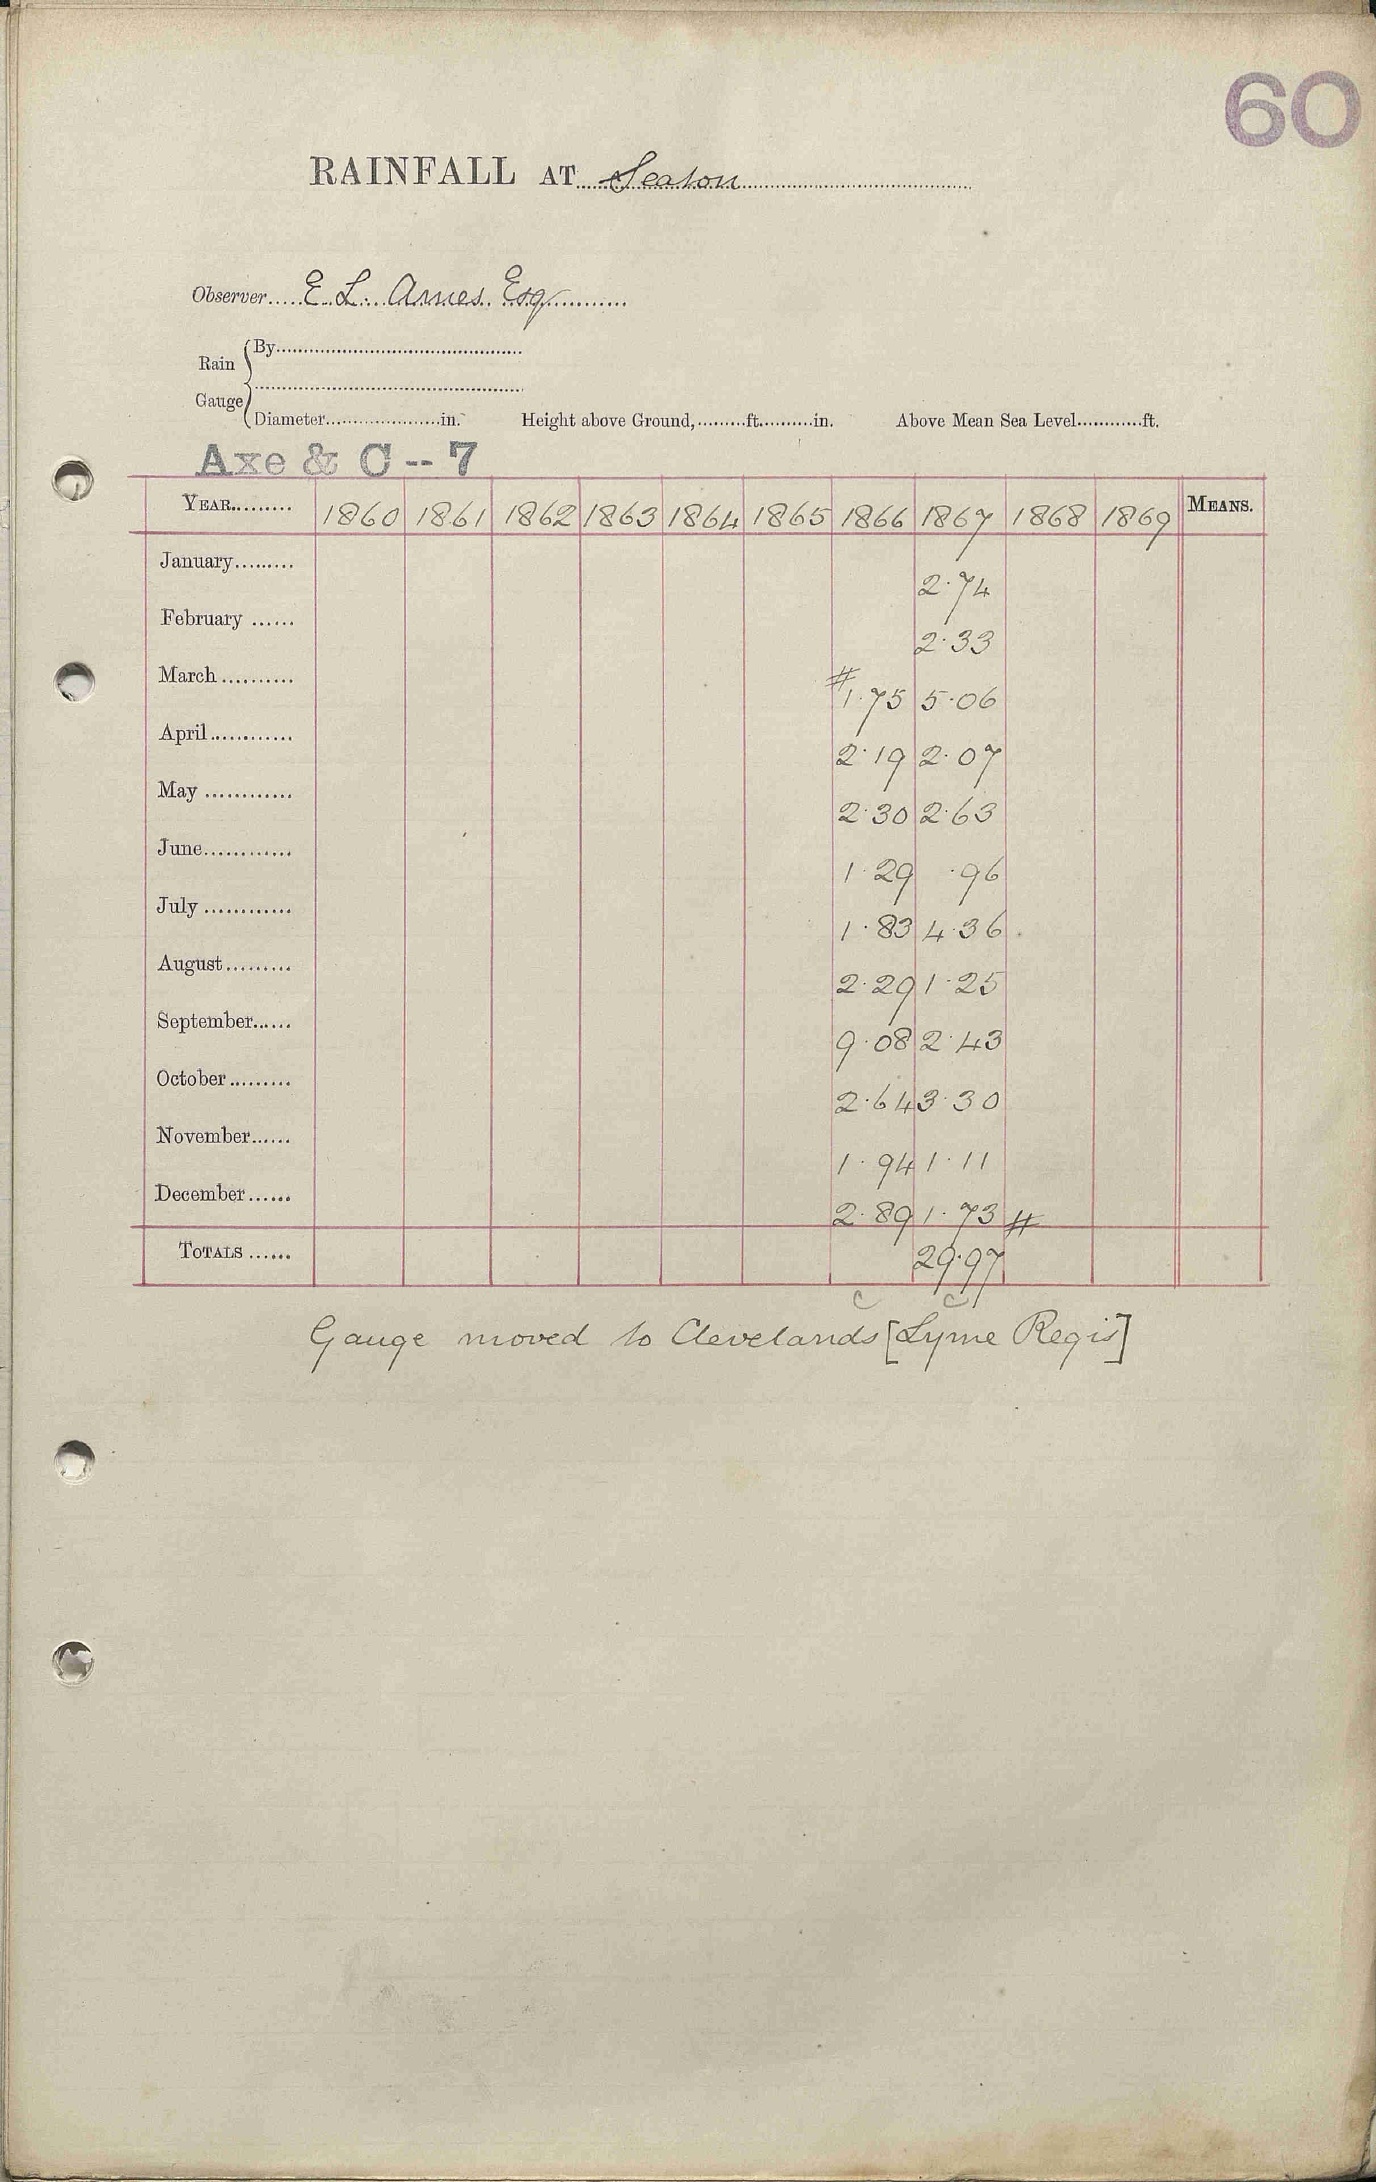 60
RAINFALL AT Seaton
Observer E. L. Ames Esq
Rain Gauge By
Diameter in. Height above Ground, ft. in. Above Mean Sea Level ft.
Axe & C -- 7
YEAR 1860 1861 1862 1863 1864 1865 1866 1867 1868 1869 MEANS.
January 2.74
February 2.33
March # 1.75 5.06
April 2.19 2.07
May 2.30 2.63
June 1.29 .96
July 1.83 4.36
August 2.29 1.25
September 9.08 2.43
October 2.64 3.30
November 1.94 1.11
December 2.89 1.73 #
TOTALS 29.97
c c
Gauge moved to Clevelands [Lyme Regis]